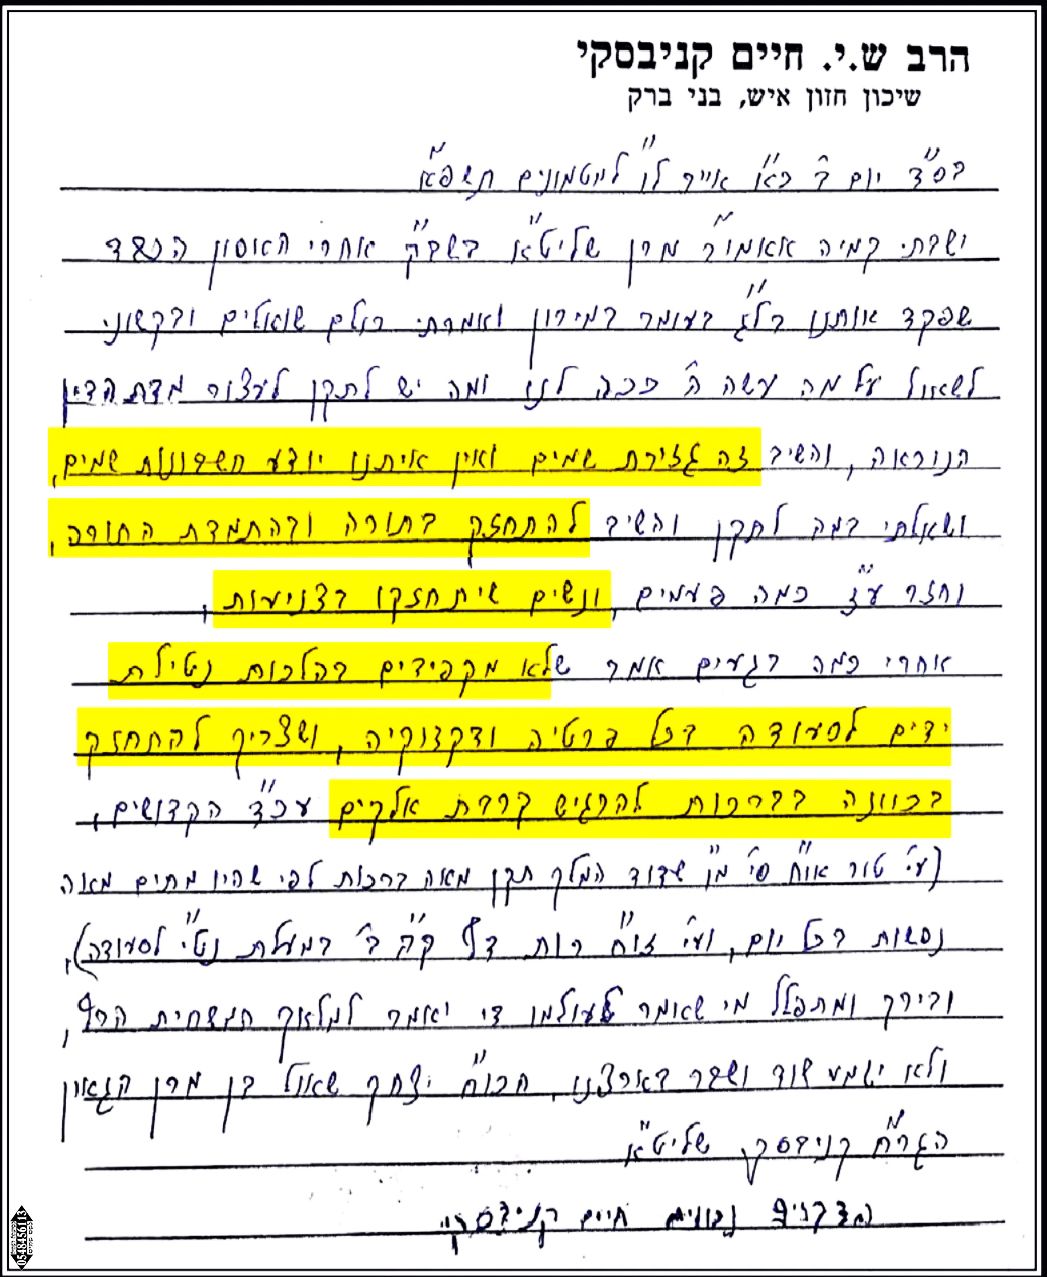 הרב ש.י. חיים קניבסקי
שיכון חזון איש, בני ברק
בס"ד יום ב' כ"א אייר ל"ו למטמונים תשפ"א
ישבתי קמיה אאמו"ר מרן שליט"א בשב"ק אחרי האסון הכבד
שפקד אותנו בל"ג בעומר במירון ואמרתי כולם שואלים ובקשוני
לשאול על מה עשה ה' ככה לנו ומה יש לתקן לעצור מדת הדין
הנוראה, והשיב זה גזירת שמים ואין איתנו יודע חשבונות שמים,
ושאלתי במה לתקן והשיב להתחזק בתורה ובהתמדת התורה,
וחזר ע"ז כמה פעמים, ונשים שיתחזקו בצניעות,
אחרי כמה רגעים אמר שלא מקפידים בהלכות נטילת
ידים לסעודה בכל פרטיה ודקדוקיה, ושצריך להתחזק
בכוונה בברכות להרגיש קרבת אלקים עכ"ד הקדושים,
(עי' טור או"ח סי' מ"ו שדוד המלך תקן מאה ברכות לפי שהיו מתים מאה
נפשות בכל יום, ועי' זו"ח רות דף ק"ק ב' במעלת נט"י לסעודה),
ובירך ומתפלל מי שאמר לעולמו די יאמר למלאך המשחית הרף,
ולא ישמע שוד ושבר בארצנו, הכו"ח יצחק שאול בן מרן הגאון
הגר"ח קניבסקי שליט"א
הדברים נכונים חיים קניבסקי
0548456113